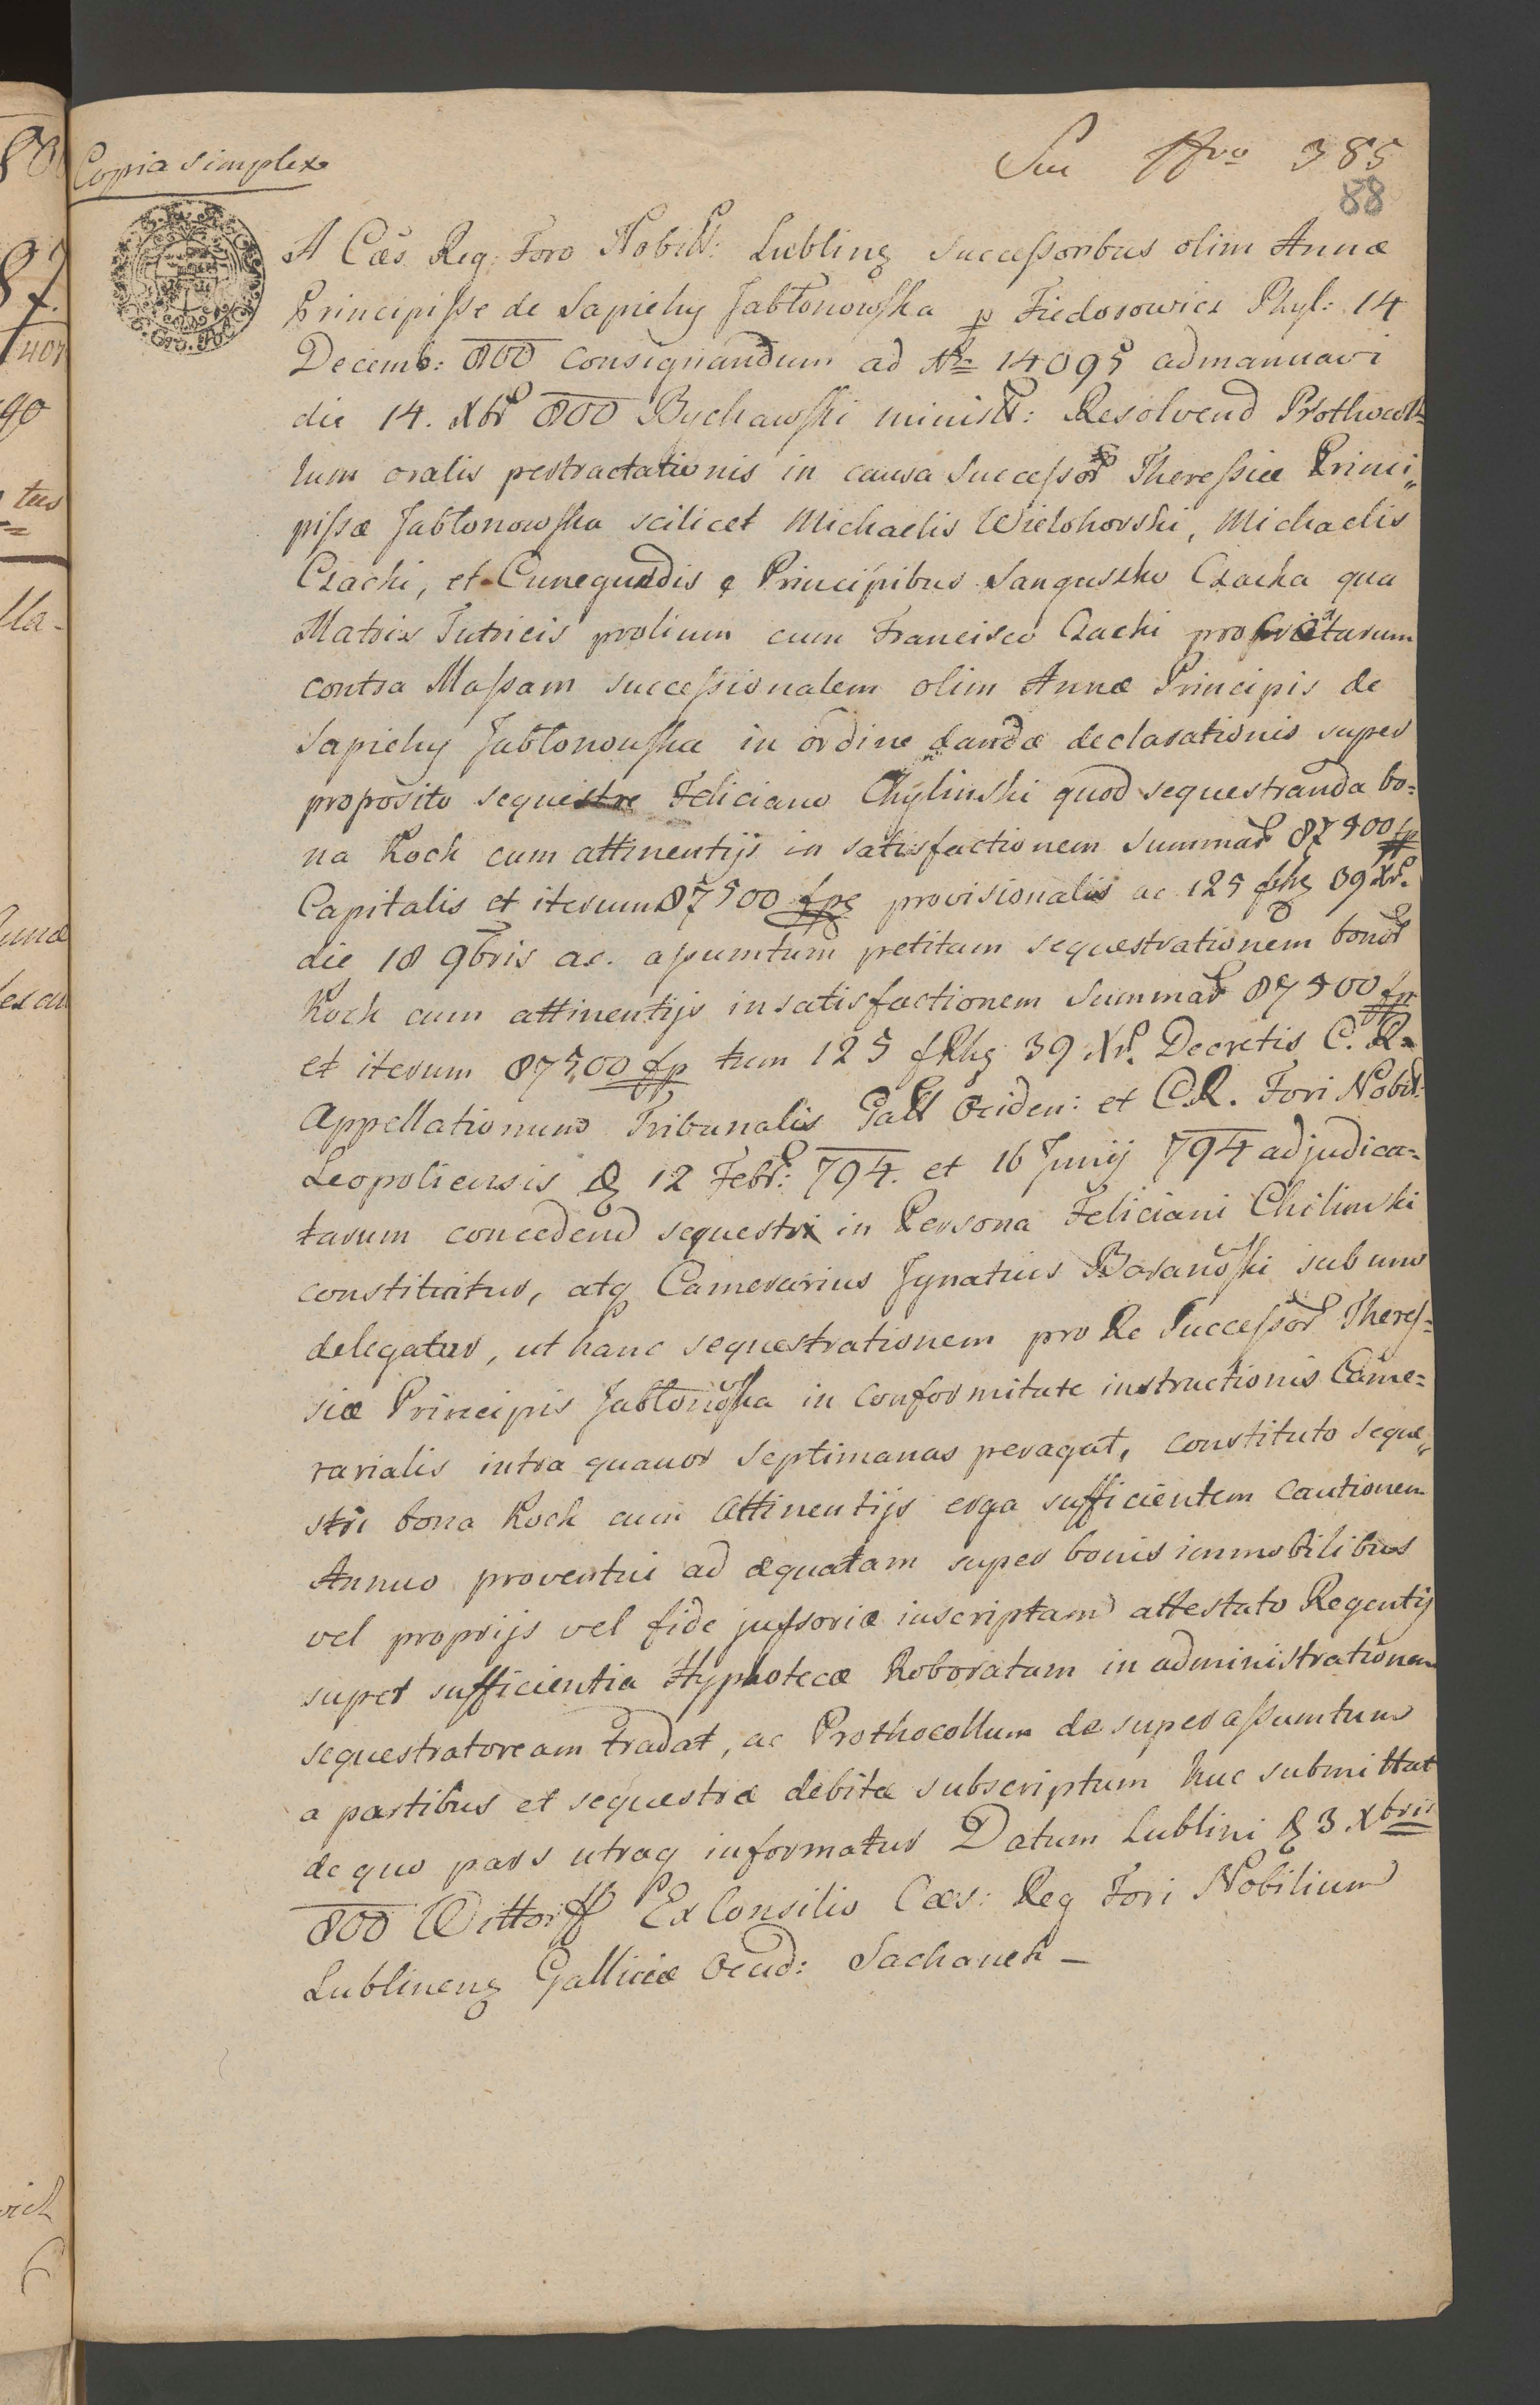 Copia simplex
385
88
A Cæs Reg: Foro Nobill: Lublinę Successoribus olim Annæ
Principisse de Sapiehy Jabłonowska p Fiedorowicz Phyl: 14
Decemb: 800 consignandum ad Nr 14095 admanuavi
die 14. Xbr 800 Bychawski ministr: Resolvend Prothocol=
lum oralis pertractationis in causa Successor Theressiæ Princi„
pissæ Jabłonowska scilicet Michaelis Wielohorski, Michaelis
Czachi, et Cunegundis e Principibus Sanguszko Czacka qua
Matris Tutricis prolium cum Francisco Czachi
contra Massam successionalem olim Annæ Principis de
Sapiehy Jabłonowska in ordine dandæ declarationis super
proposito sequestre Feliciano Chylinski quod sequestranda bo=
na Kock cum attinentijs in satisfactionem Summar 87500 fp
Capitalis et iterum 87500 fpę provisionalis ac 125 fRhę 39 Xr.
die 18 9bris ac. assumtum petitam sequestrationem bonor
Kock cum attinentijs in satisfactionem Summar 87500 fp
et iterum 87500 fp tum 125 fRhę 39 Xr. Decretis C. R.
Appellationum Tribunalis Gall Ociden: et C.R. Fori Nobil:
Leopoliensis 12 Febr: 794. et 16 Junij 794 adjudica=
tarum concedend sequestri in Persona Feliciani Chilinski
constituitur, atq Camerarius Ignatius Baranoski sub uno
delegatur, ut hanc sequestrationem pro Re Successor Theres=
siæ Principis Jabłonoska in conformitate instructionis Came=
rarialis intra quauor septimanas peragat, constituto seque„
stri bona Kock cum Attinentijs erga sufficientem Cautionem
Annuo proventui ad æquatam super bonis immobilibus
vel proprijs vel fide jussoriæ inscriptam attestato Regentij
super sufficientia Hyphotecæ Roboratam in administrationem
sequestratoream tradat, ac Prothocollum desuper assumtum
a partibus et sequestræ debitæ subscriptum huc submittat
de quo pars utraq informatur Datum Lublini 3 Xbris
800 Wittorff Ex Consilio Cæs: Reg Fori Nobilium
Lublinenę Galliciæ Ocud: Sachanek –